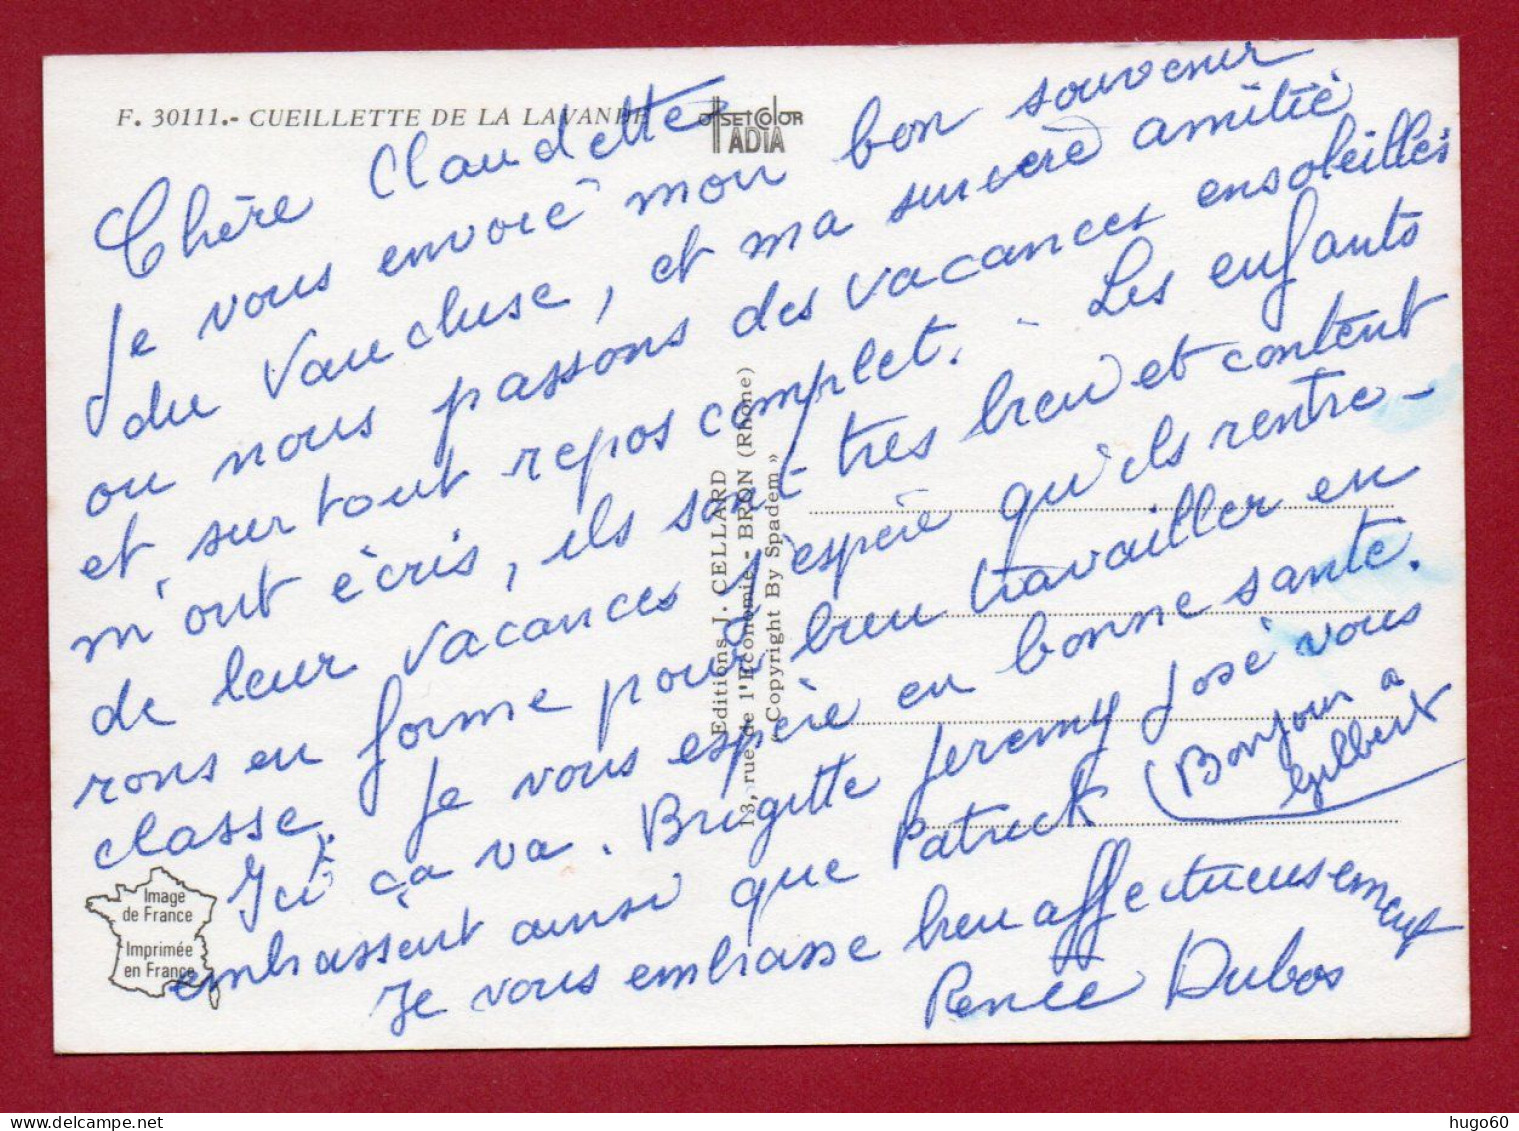 F. 30111.- CUEILLETTE DE LA LAVANDE
OffSETCOlOR
ADIA
Chère Claudette
Je vous envoie mon bon souvenir
du Vaucluse, et ma sincère amitié
ou nous passons des vacances ensoleillés
et surtout repos complet. - Les enfants
m'ont écris, ils sont très bien et content
de leur vacances j'espère qu'ils rentre-
rons en forme pour bien travailler en
classe. Je vous espère en bonne santé.
Ici ça va. Brigitte Jeremy José vous
embrassent ainsi que Patrick (Bonjour a
Gilbert
Je vous embrasse bien affectueusement
Renée Dubos
Editions J. CELLARD
13, rue de l'Economie - BRON (Rhône)
« Copyright By Spadem »
Image
de France
Imprimée
en France
hugo60